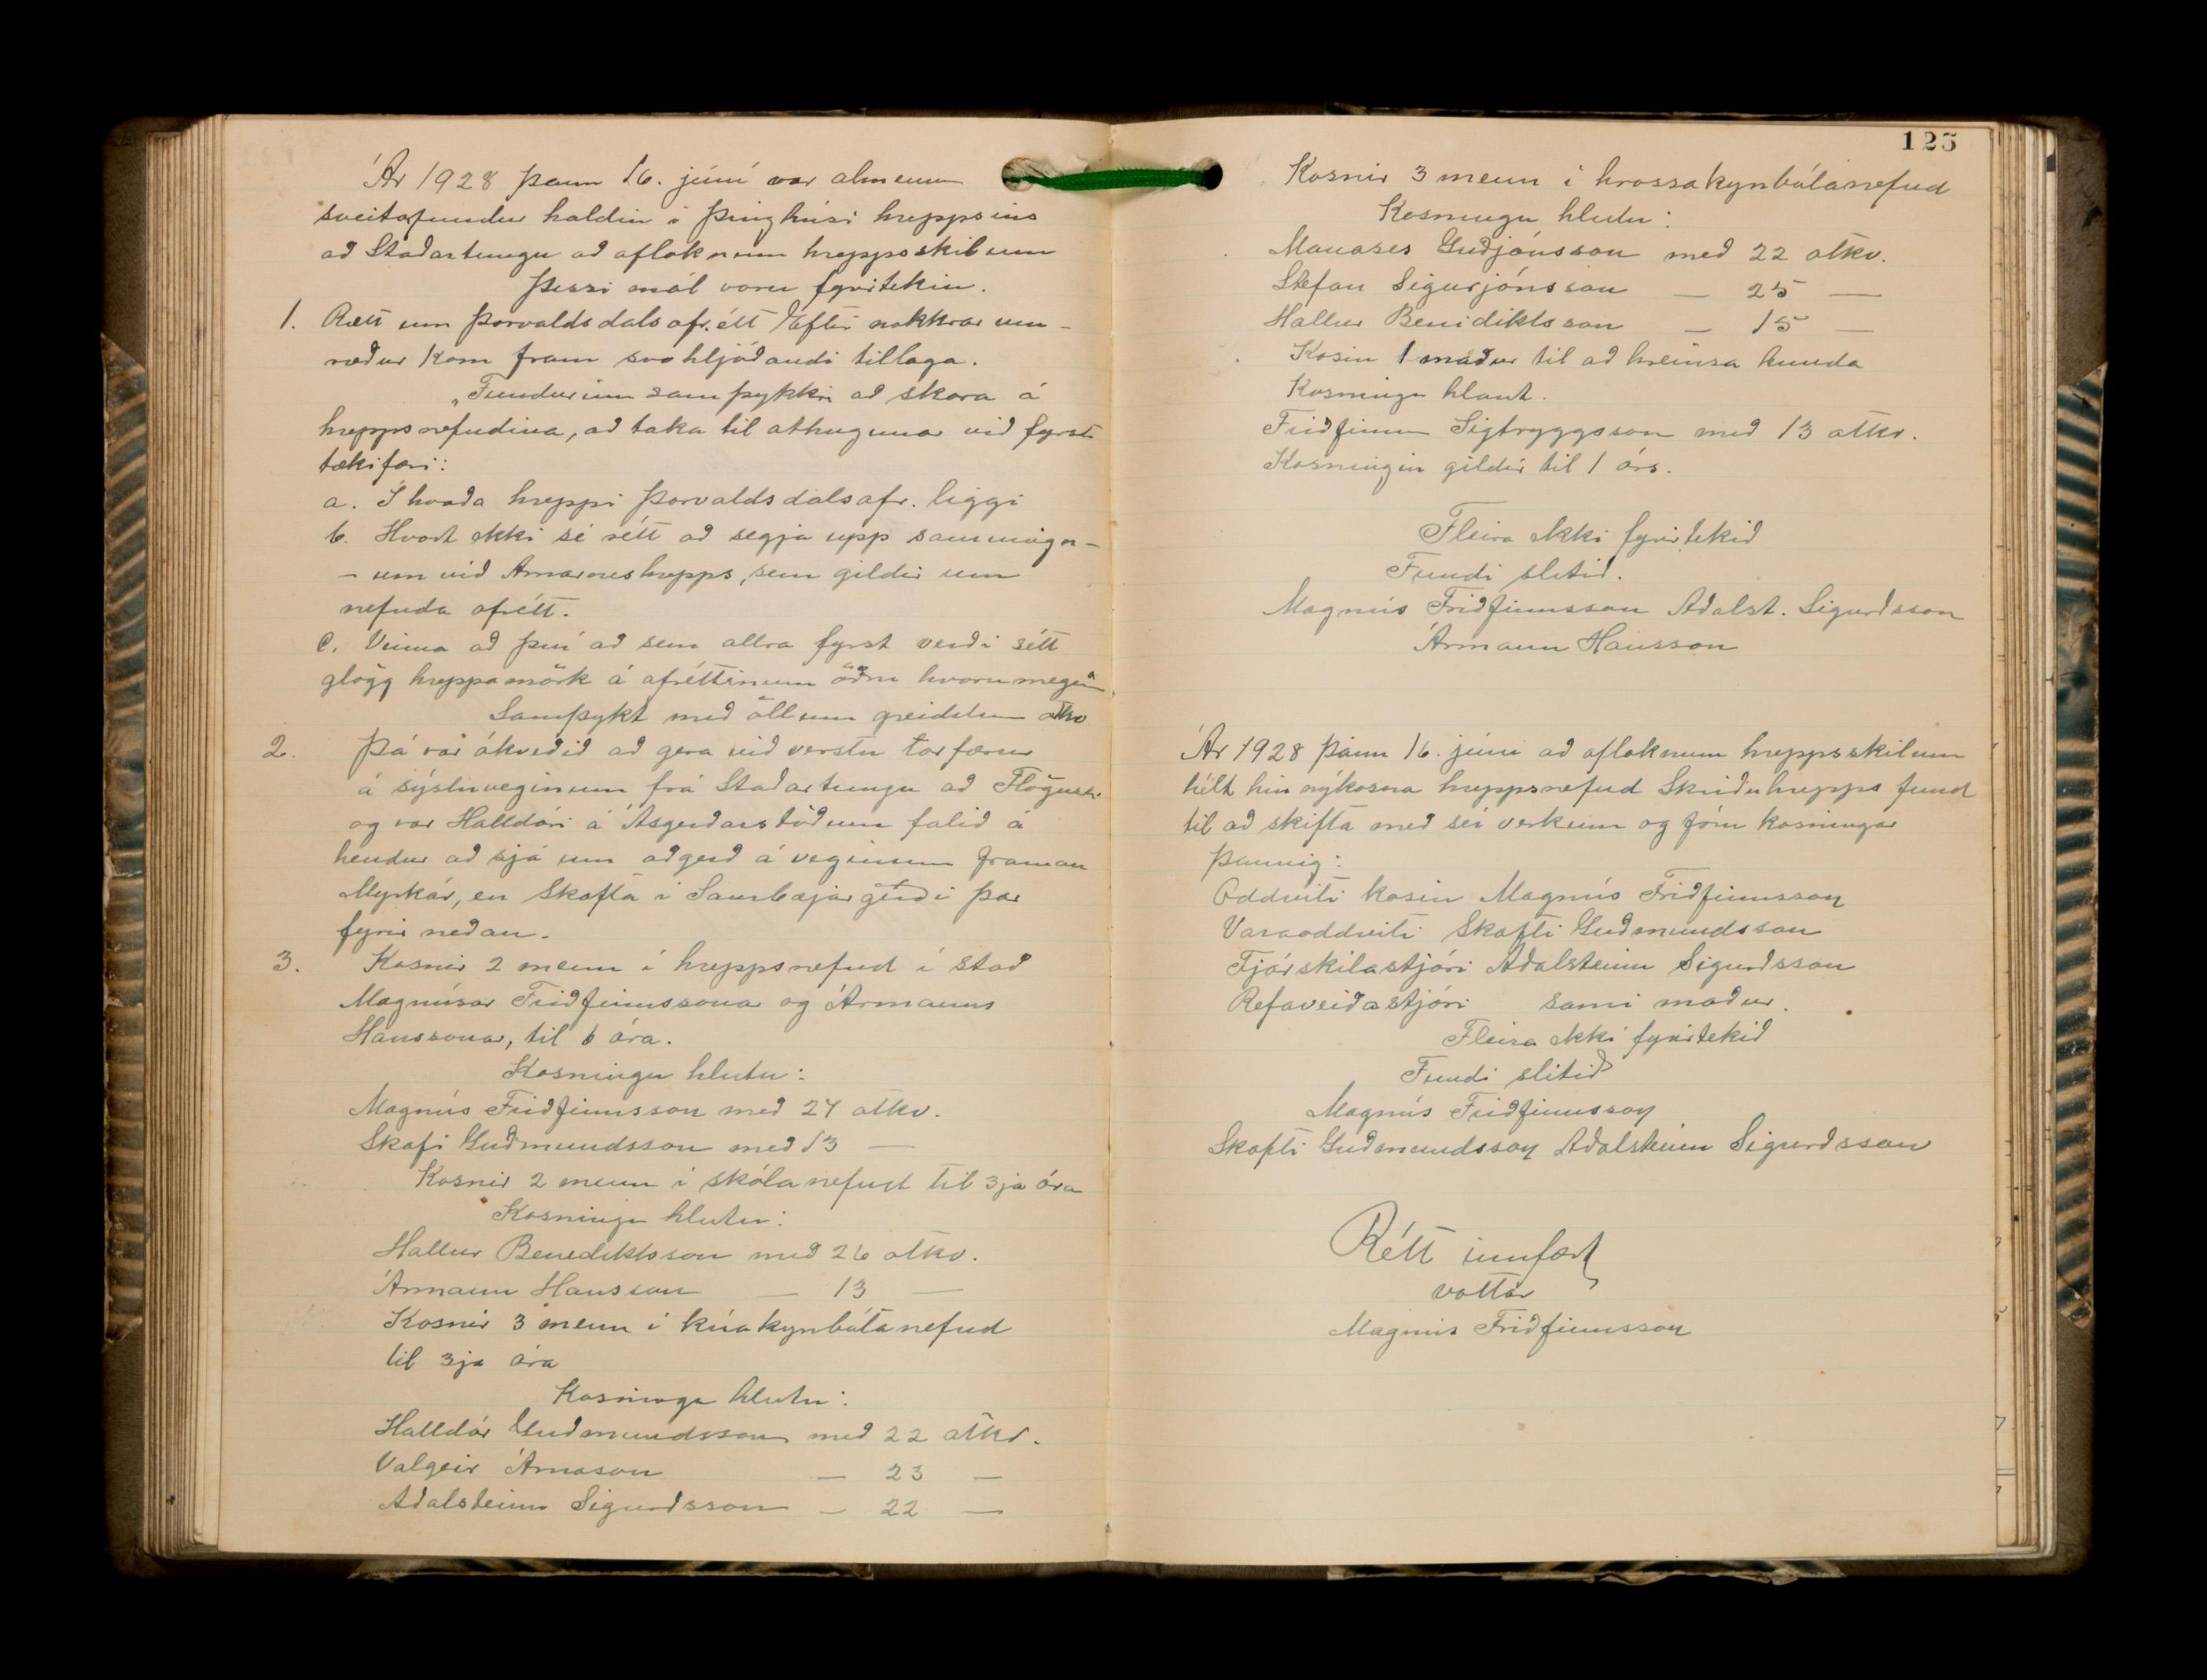 Ár 1928 þann 16. júní var almenn
sveitarfundur haldin í þinghúsi hreppsins
að Staðartungu að afloknum hreppsskilum
Þessi mál voru fyritekin.
1. Rætt um Þorvaldsdalsafrétt Eftir nokkrar um-
ræður kom fram svohljóðandi tillaga.
„Fundurinn samþykkir að skora á
hreppsnefndina, að taka til athugunar við fyrsta
tækifæri:
a. Í hvaða hreppi Þorvaldsdalsafr. liggi
b. Hvort ekki sé rétt að segja upp samningn-
- um við Arnarneshrepps, sem gildir um
nefnda afrétt.
c. Vinna að því að sem allra fyrst verði sétt
glögg hreppamörk á afréttinum öðru hvoru megin
Samþykt með öllum greiddum atkv
2. Þá var ákveðið að gera við verstu torfærur
á sýsluveginum frá Staðartungu að Flögusel
og var Halldóri á Ásgerðarstöðum falið á
hendur að sjá um aðgerð á veginum framan
Myrkár, en Skafta í Saurbæjargerði þar
fyrir neðan.
3. Kosnir 2 menn í hreppsnefnd í stað
Magnúsar Friðfinnssonar og Ármanns
Hanssonar, til 6 ára.
Kosningu hlutu:
Magnús Friðfinnsson með 24 atkv.
Skafi Guðmundsson með 13 —
Kosnir 2 menn í skólanefnd til 3ja ára
Kosningu hlutu:
Hallur Benediktsson með 26 atkv.
Ármann Hansson — 13 —
Kosnir 3 menn í kúakynbótanefnd
til 3ja ára
Kosningu hlutu:
Halldór Guðmundsson með 22 atkv.
Valgeir Árnason — 23 —
Aðalsteinn Sigurðsson — 22 —
125
Kosnir 3 menn í hrossakynbótanefnd
Kosningu hlutu:
Manases Guðjónsson með 22 atkv.
Stefan Sigurjónsson — 25 —
Hallur Benidiktsson — 15 —
Kosin 1 maður til að hreinsa hunda
Kosningu hlaut.
Friðfinnur Sigtryggsson með 13 atkv.
Kosningin gildir til 1 árs.
Fleira ekki fyrirtekið
Fundi slitið.
Magnús Friðfinnsson Aðalst. Sigurðsson
Ármann Hansson
Ár 1928 þann 16. júní að afloknum hreppsskilum
hélt hin nýkosna hreppsnefnd Skriðuhrepps fund
til að skifta með sér verkum og fóru kosningar
þannig:
Oddviti kosin Magnús Friðfinnsson
Varaoddviti Skafti Guðmundsson
Fjárskilastjóri Aðalsteinn Sigurðsson
Refaveiðastjóri sami maður.
Fleira ekki fyrirtekið
Fundi slitið
Magnús Friðfinnsson
Skafti Guðmundsson Aðalsteinn Sigurðsson
Rétt innfært
vottar
Magnús Friðfinnsson